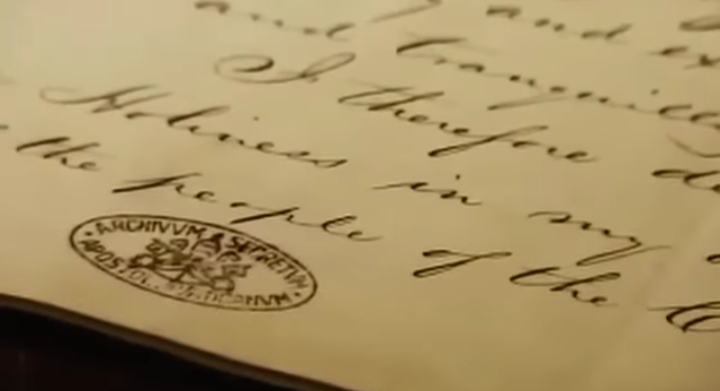 and and
tranquill
I therefore
Holiness in my
the people of the
ARCHIVVM SECRETVM
APOSTOL. VATICANVM